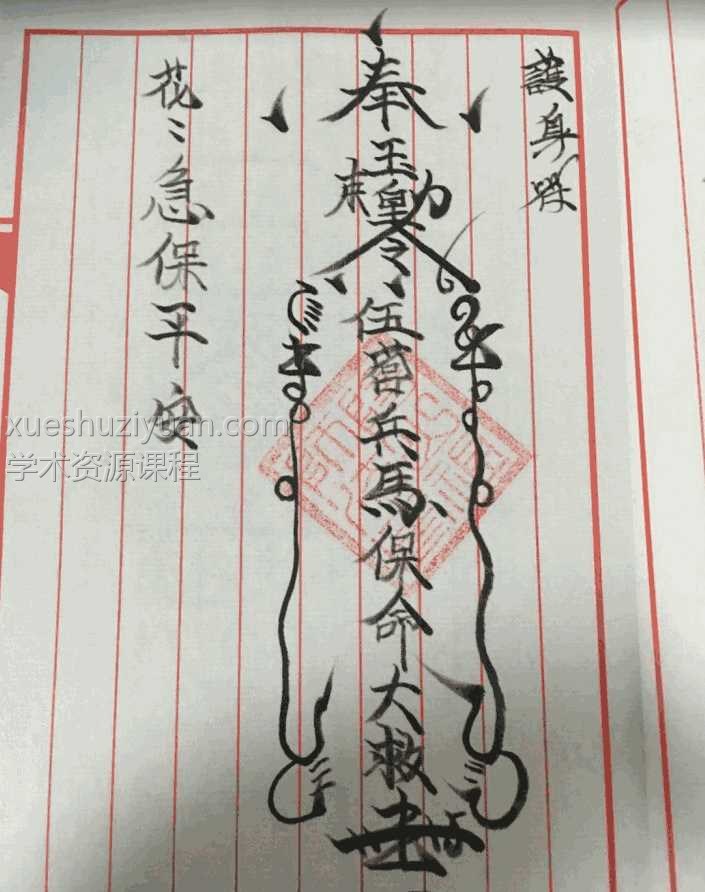 護身
奉玉皇勅令伍營兵馬保命大救
花〻急保平安
xueshuziyuan.com
学术资源课程